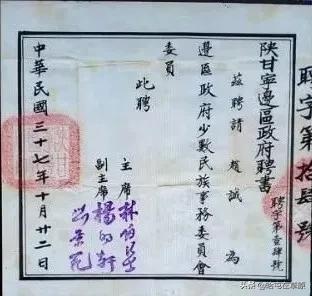 聘字第拾肆號
陝甘寧邊區政府聘書
聘字第壹肆號
茲聘請 趙誠 為
邊區政府少數民族事務委員會
委員
此聘
主席 林伯渠
副主席 楊明軒
劉景范
中華民國三十七年十月廿二日
陝甘
头条 @哈屯在草原